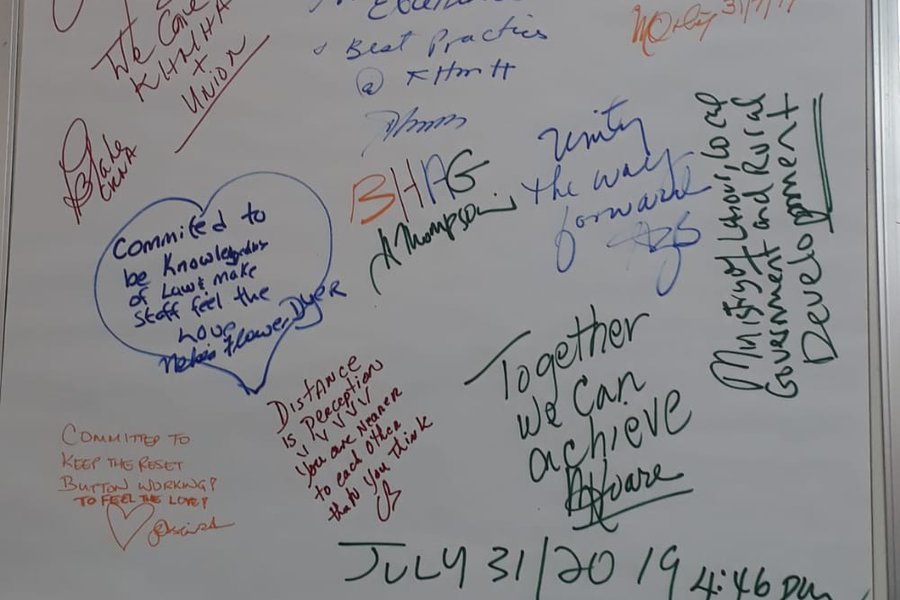 We Care
KHMHA
+
Union
Best Practices
@ KHMHA
Blake
BHAG
Thompson
Unity
the way
forward
Ministry of Labour, Local
Government and Rural
Development
Commited to
be Knowledgeable
of Law & make
Staff feel the
Love
Flower Dyer
Distance
is Perception
VVVVV
You are Nearer
to each other
than you Think
Together
We Can
achieve
Committed to
Keep the Reset
Button working!
to feel the love!
July 31/2019 4:46 pm